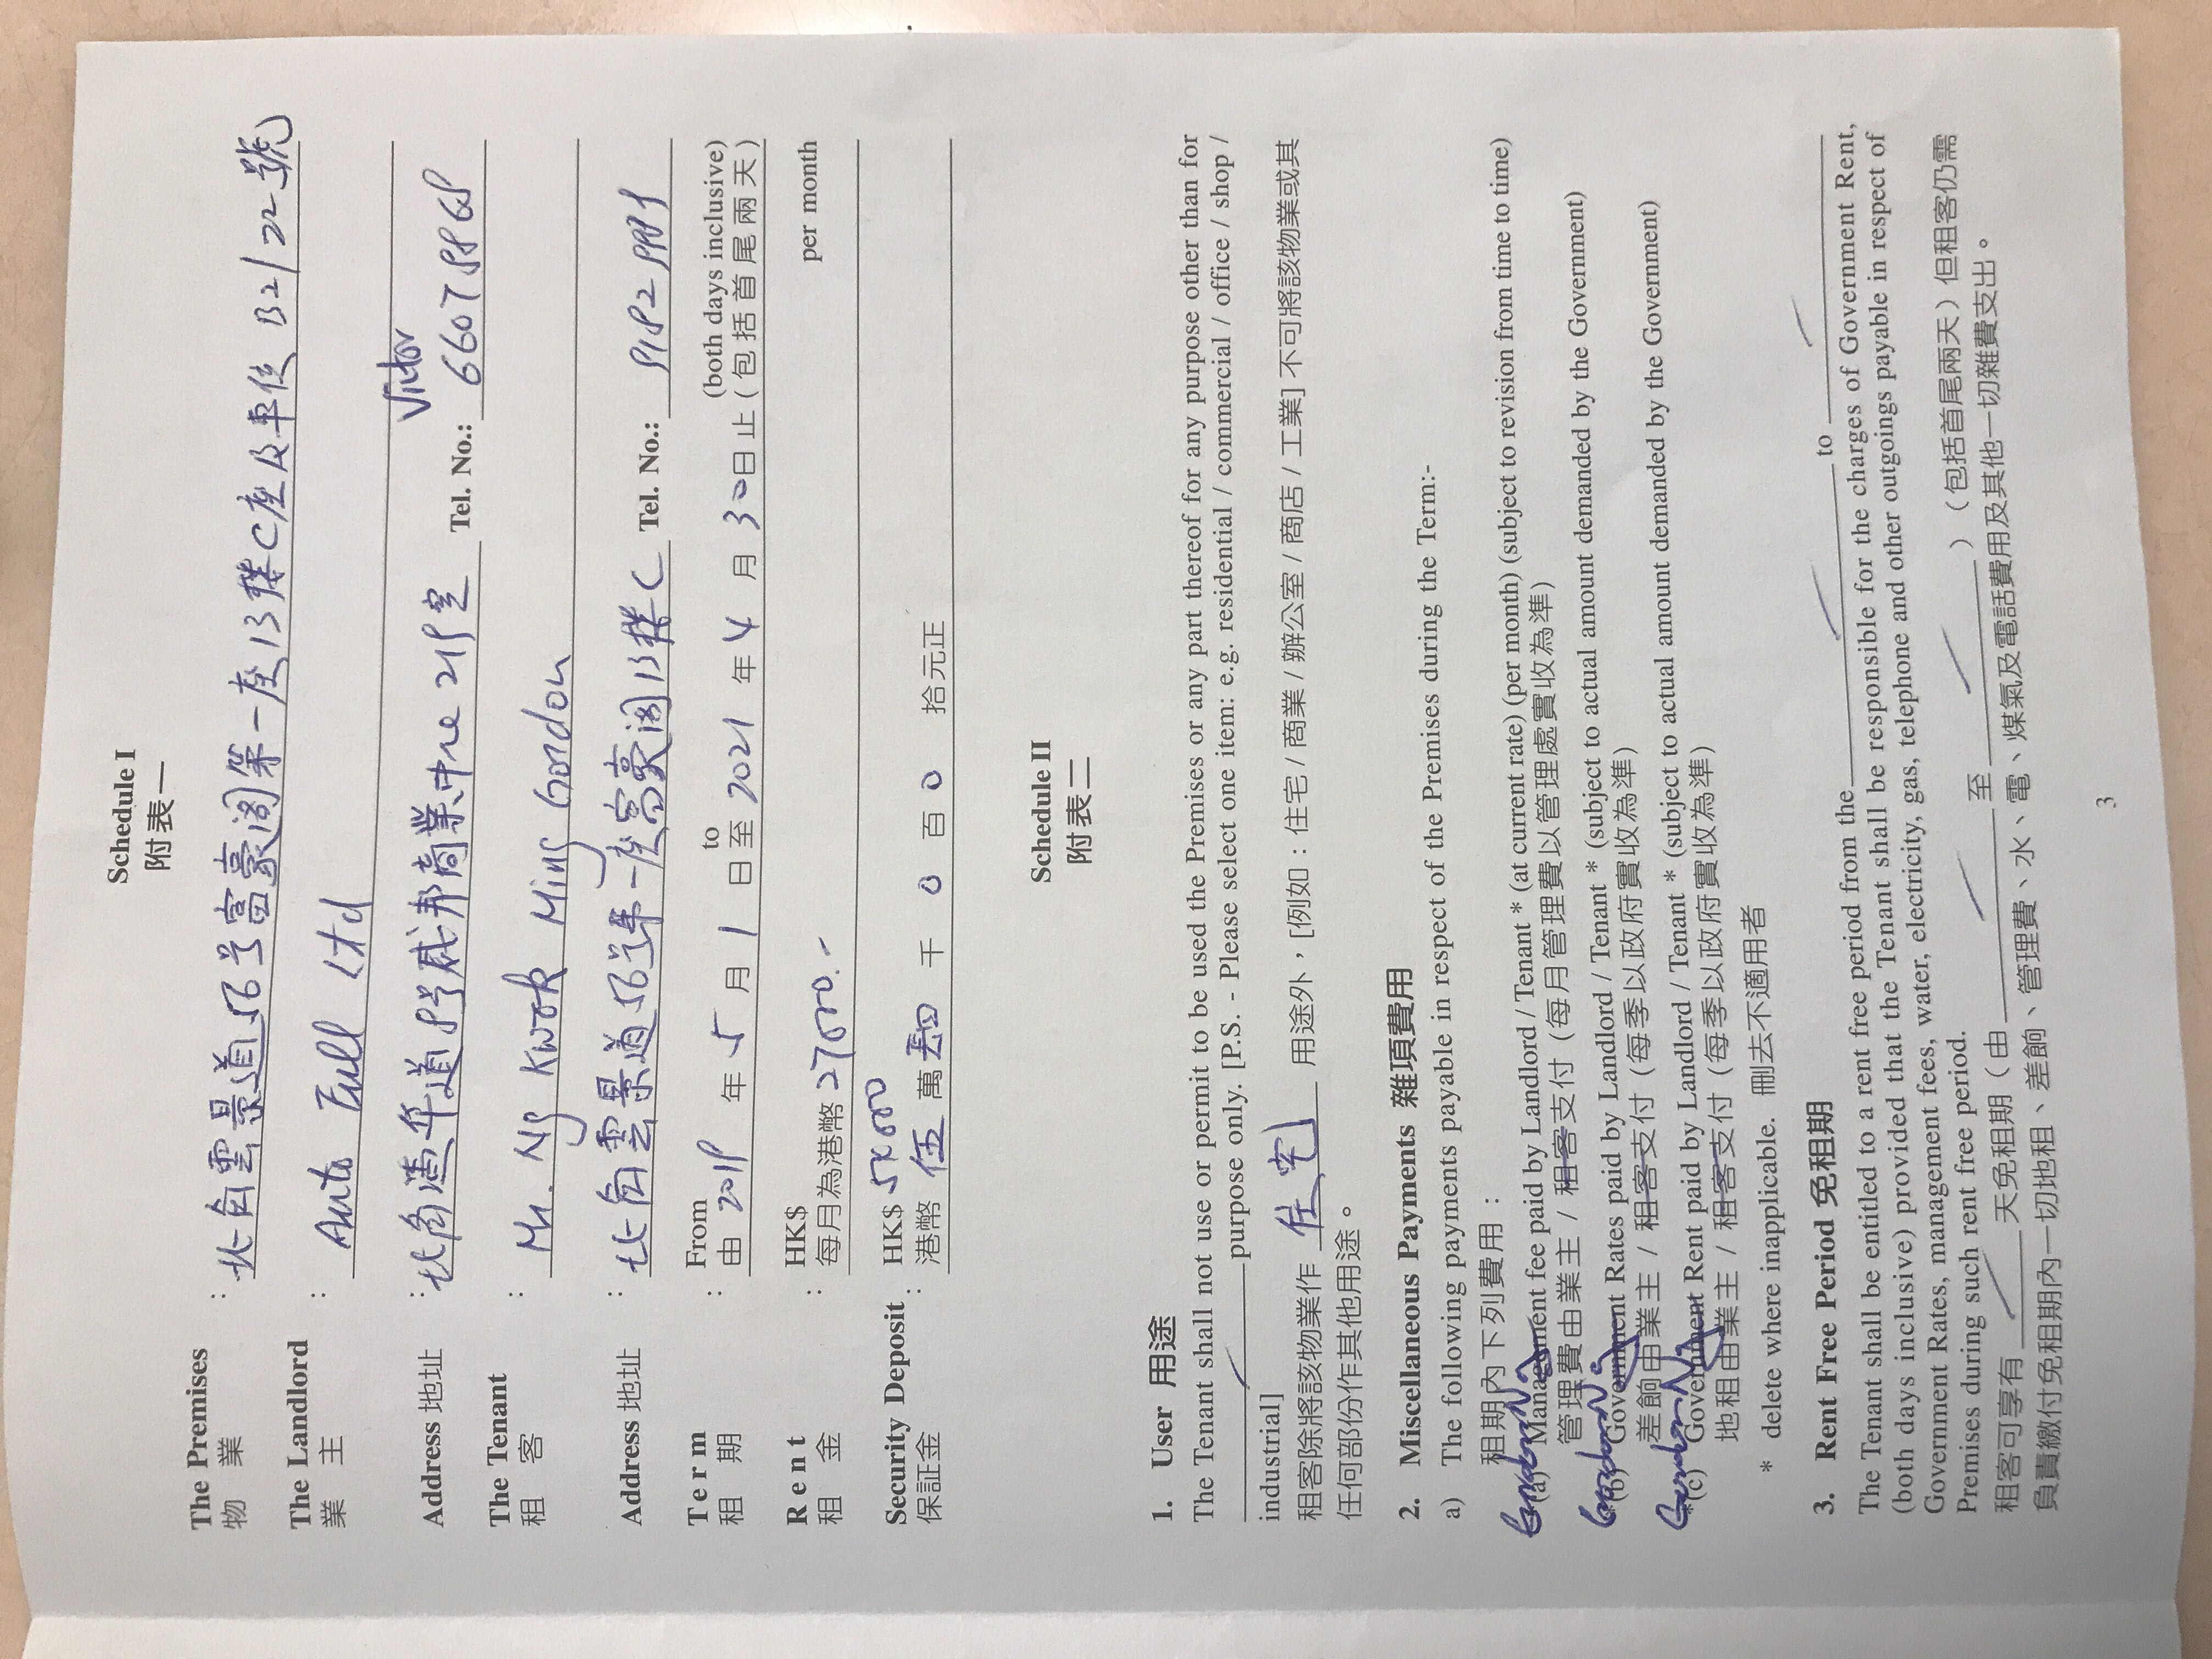 Schedule I
附表一
The Premises : 北角雲景道56号富豪阁第一座13樓C座及車位B2/22號
物 業
The Landlord : Auto Full Ltd
業 主
Victor
Address 地址 : 北角 道 号威邦商業中心 室 Tel. No.: 6607
The Tenant : Mr. Ng Kwok Ming Gordon
租 客
Address 地址 : 北角雲景道56号第一座富豪阁13樓C Tel. No.:
Term : From to (both days inclusive)
租 期 由 年 5 月 1 日至 2021 年 4 月 30 日止(包括首尾兩天)
Rent : HK$ per month
租 金 每月為港幣 27000.-
Security Deposit : HK$ 54000
保証金 港幣 伍 萬 四 千 0 百 0 拾元正
Schedule II
附表二
1. User 用途
The Tenant shall not use or permit to be used the Premises or any part thereof for any purpose other than for
purpose only. [P.S. - Please select one item: e.g. residential / commercial / office / shop /
industrial]
租客除將該物業作 住宅 用途外，[例如：住宅 / 商業 / 辦公室 / 商店 / 工業] 不可將該物業或其
任何部份作其他用途。
2. Miscellaneous Payments 雜項費用
a) The following payments payable in respect of the Premises during the Term:-
租期內下列費用：
*(a) Management fee paid by Landlord / Tenant * (at current rate) (per month) (subject to revision from time to time)
管理費由業主 / 租客支付（每月管理費以管理處實收為準）
*(b) Government Rates paid by Landlord / Tenant * (subject to actual amount demanded by the Government)
差餉由業主 / 租客支付（每季以政府實收為準）
*(c) Government Rent paid by Landlord / Tenant * (subject to actual amount demanded by the Government)
地租由業主 / 租客支付（每季以政府實收為準）
* delete where inapplicable. 刪去不適用者
3. Rent Free Period 免租期
The Tenant shall be entitled to a rent free period from the to
(both days inclusive) provided that the Tenant shall be responsible for the charges of Government Rent,
Government Rates, management fees, water, electricity, gas, telephone and other outgoings payable in respect of
Premises during such rent free period.
租客可享有 天免租期（由 至 ）（包括首尾兩天）但租客仍需
負責繳付免租期內一切地租、差餉、管理費、水、電、煤氣及電話費用及其他一切雜費支出。
3